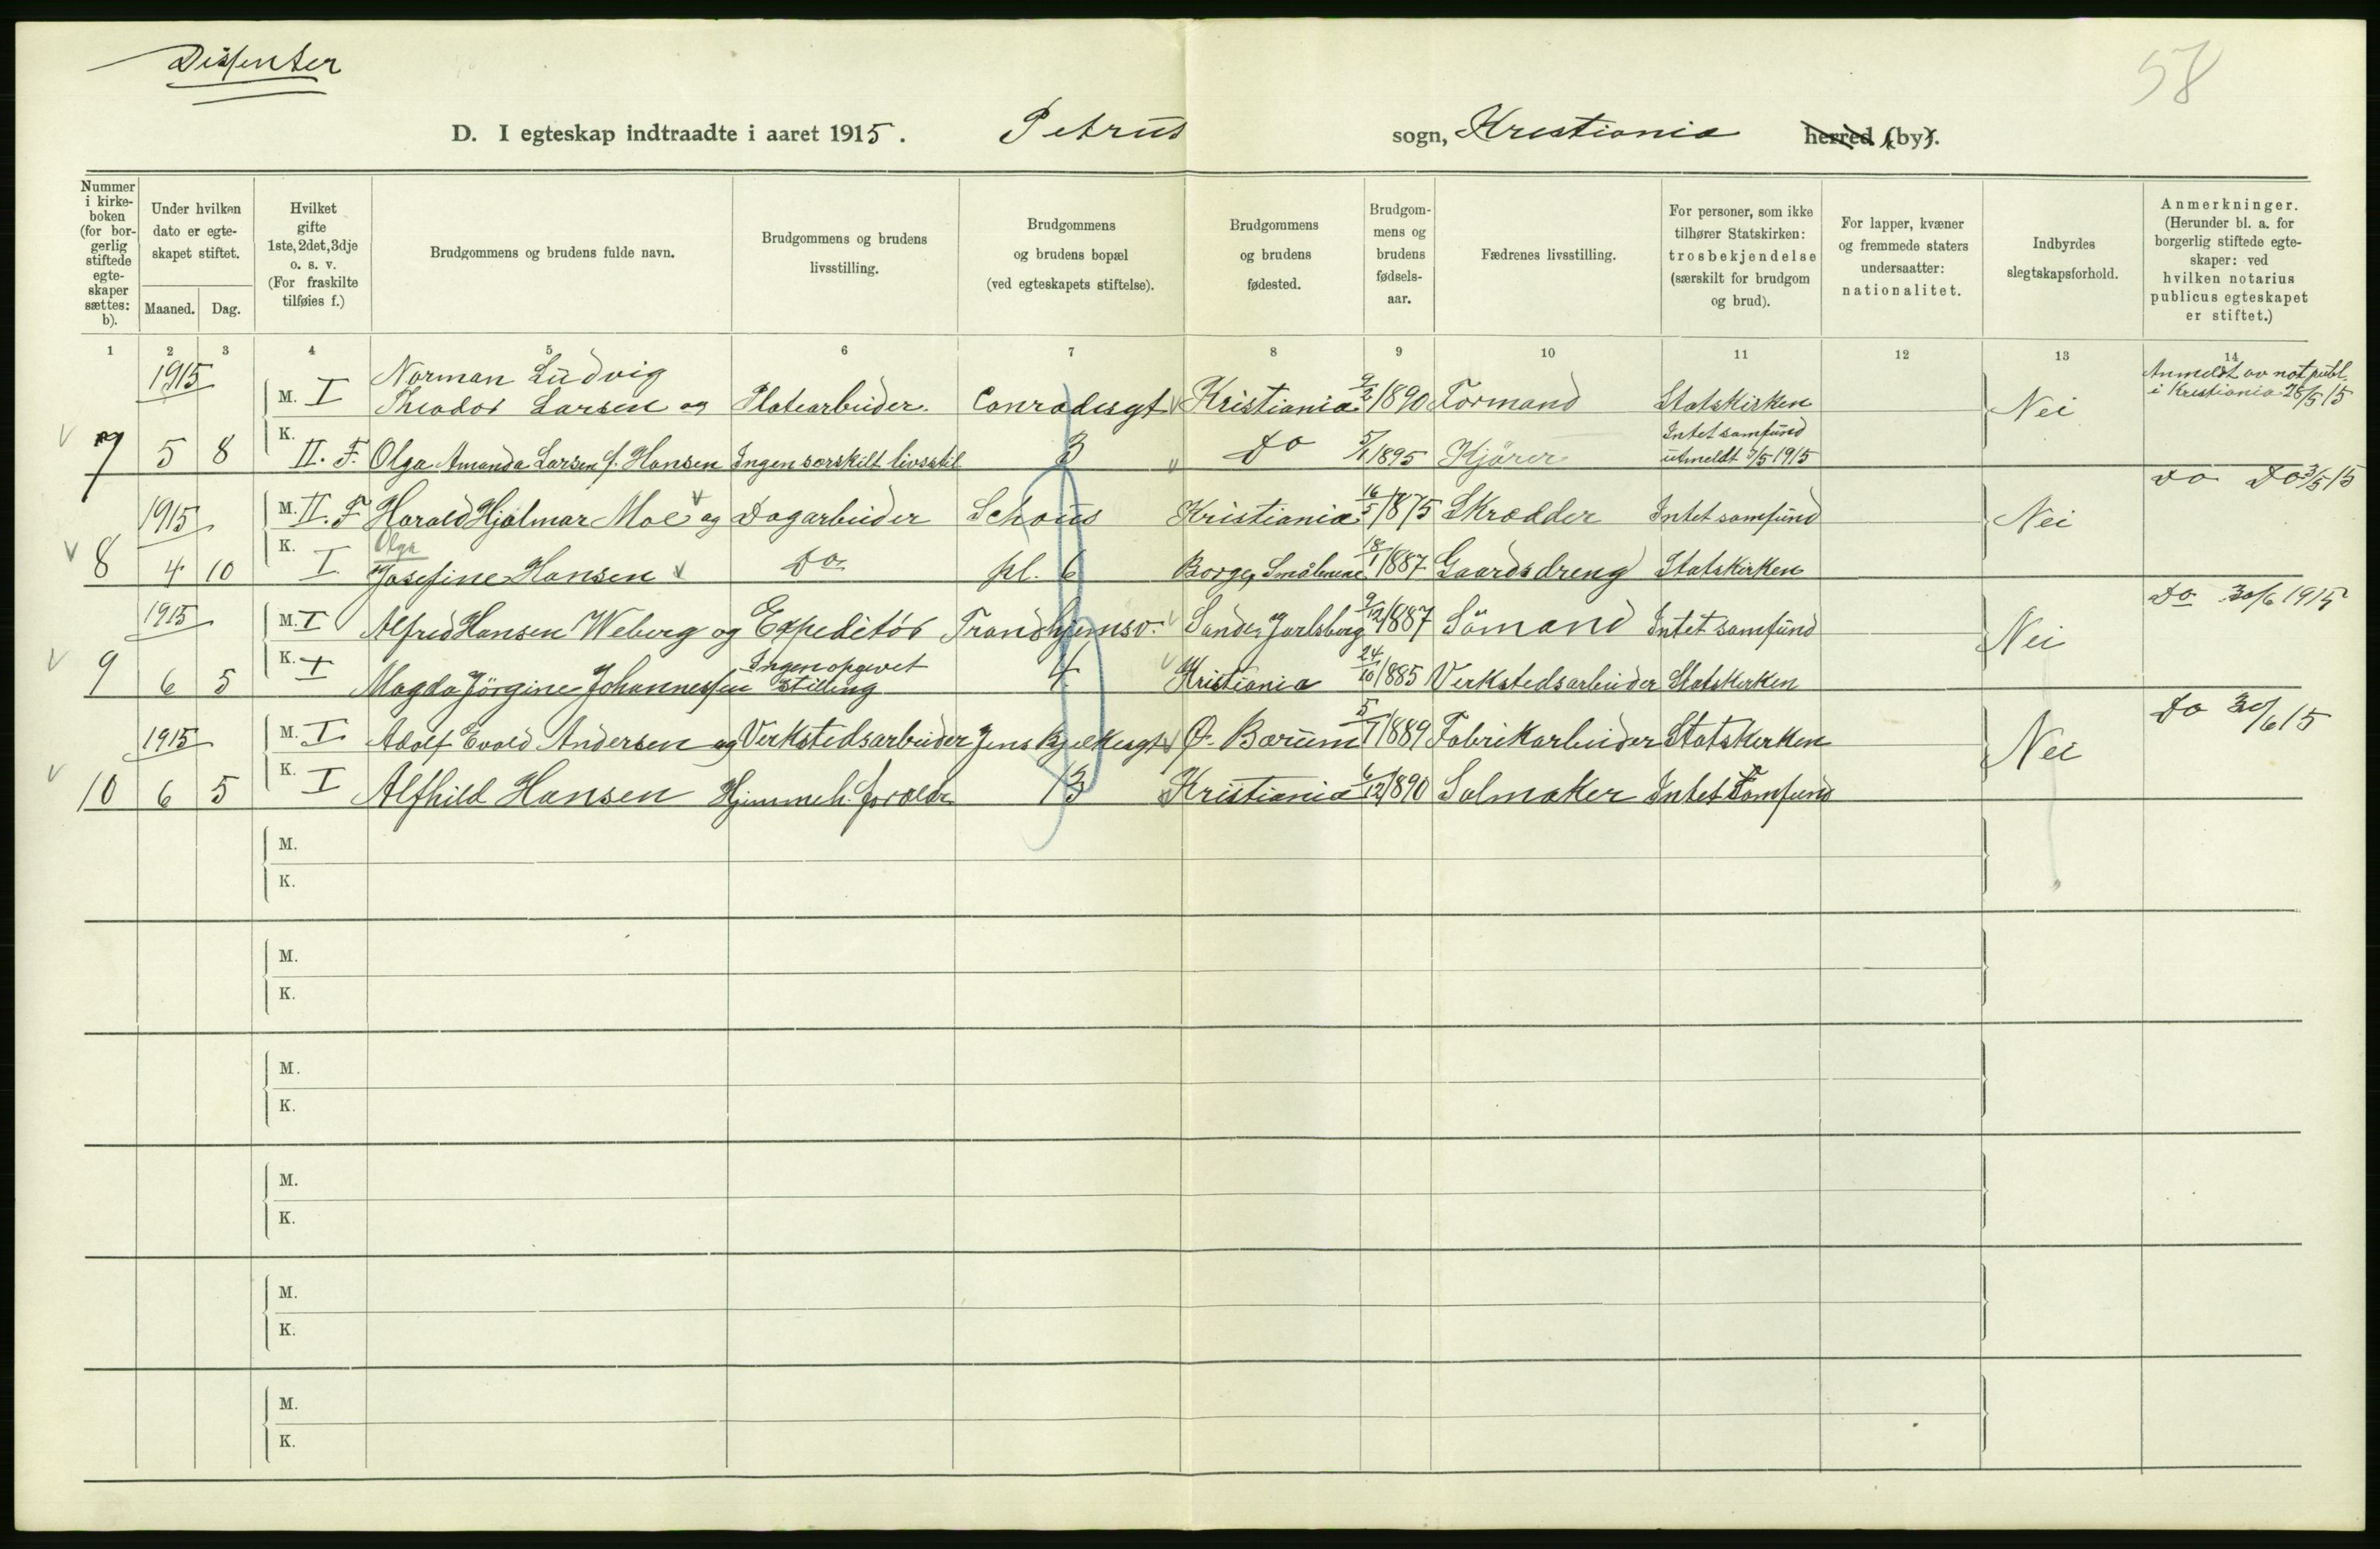 Dissenter
58
D. I egteskap indtraadte i aaret 1915. Petrus sogn, Kristiania herred (by).
Nummer i kirkeboken (for borgerlig stiftede egteskaper sættes: b).
Under hvilken dato er egteskapet stiftet.
Maaned. Dag.
Hvilket gifte 1ste, 2det, 3dje o. s. v. (For fraskilte tilføies f.)
Brudgommens og brudens fulde navn.
Brudgommens og brudens livsstilling.
Brudgommens og brudens bopæl (ved egteskapets stiftelse).
Brudgommens og brudens fødested.
Brudgommens og brudens fødselsaar.
Fædrenes livsstilling.
For personer, som ikke tilhører Statskirken: trosbekjendelse (særskilt for brudgom og brud).
For lapper, kvæner og fremmede staters undersaatter: nationalitet.
Indbyrdes slegtskapsforhold.
Anmerkninger. (Herunder bl. a. for borgerlig stiftede egteskaper: ved hvilken notarius publicus egteskapet er stiftet.)
1 2 3 4 5 6 7 8 9 10 11 12 13 14
1915 M. I Norman Ludvig Theodor Larsen og Platearbeider. Conradisgt Kristiania 9/2 1890 Formand Statskirken Nei Anmeldt av not publ. i Kristiania 28/5 15
7 5 8 K. II. F. Olga Amanda Larsen f. Hansen Ingen særskilt livsstil 3 Do 5/1 1895 Kjører Intet samfund utmeldt 7/5 1915
1915 M. II. F Harald Hjalmar Moe og Dagarbeider Schous Kristiania 16/5 1875 Skrædder Intet samfund Nei Do Do 3/5 15
8 4 10 K. I Olga Josefine Hansen Do pl. 6 Borge, Smålenene 18/1 1887 Gaardsdreng Statskirken
1915 M. I Alfred Hansen Weberg og Expeditør Trondhjemsv. Sande, Jarlsberg 9/12 1887 Sømand Intet samfund Nei Do 30/6 1915
9 6 5 K. I Magda Jørgine Johannessen Ingen opgivet stilling 4 Kristiania 24/10 1885 Verkstedsarbeider Statskirken
1915 M. I Adolf Evald Andersen og Verkstedsarbeider Jens Bjelkesgt Ø. Bærum 5/1 1889 Fabrikarbeider Statskirken Nei Do 30/6 15
10 6 5 K. I Alfhild Hansen Hjemmeh. foreldr 13 Kristiania 6/12 1890 Salmaker Intet Samfund
M.
K.
M.
K.
M.
K.
M.
K.
M.
K.
M.
K.